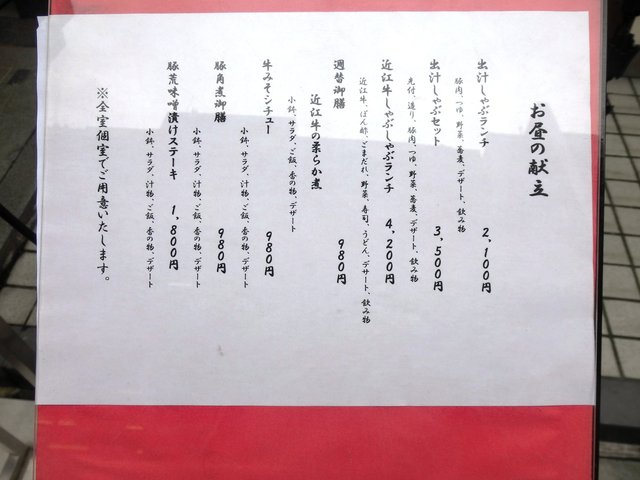 お昼の献立
出汁しゃぶランチ 2,100円
豚肉、つゆ、野菜、蕎麦、デザート、飲み物
出汁しゃぶセット 3,500円
先付、造り、豚肉、つゆ、野菜、蕎麦、デザート、飲み物
近江牛しゃぶしゃぶランチ 4,200円
近江牛、ぽん酢、ごまだれ、野菜、寿司、うどん、デザート、飲み物
週替御膳 980円
近江牛の柔らか煮
小鉢、サラダ、ご飯、香の物、デザート
牛みそシチュー 980円
小鉢、サラダ、汁物、ご飯、香の物、デザート
豚角煮御膳 980円
小鉢、サラダ、汁物、ご飯、香の物、デザート
豚荒味噌漬けステーキ 1,800円
小鉢、サラダ、汁物、ご飯、香の物、デザート
※全室個室でご用意いたします。